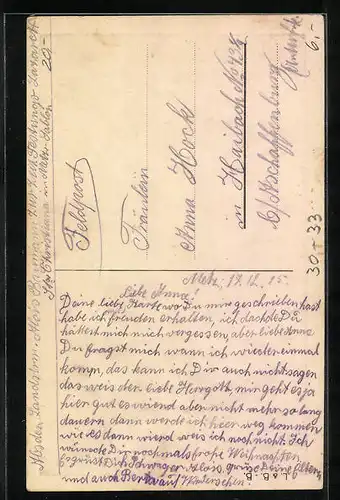 Feldpost
Fräulein
Anna Hock
in Haibach No 438
b/Aschaffenburg
6,-
30-33
20,-
Metz, 17.12.15.
Liebe Anna.
Deine liebe Karte wo Du mir geschrieben hast
habe ich freuden erhalten, ich dachde Du
hättest mich vergessen, aber liebe Anna
Du fragst mich wann ich wieder einmal
komm, das kann ich Dir auch nicht sagen
das weis der liebe Herrgott, mir geht es ja
hier gut es wierd aber nicht mehr so lang
dauern dann werde ich hier weg kommen
wie es dann wierd weis ich noch nicht. Ich
wünsche Dir nochmals frohe Weihnachten
es grüst Dich Alois, grüse Deine Eltern
und auch auf Wiedersehen.
Abs. der Landstm. Alois
Metz Sablon